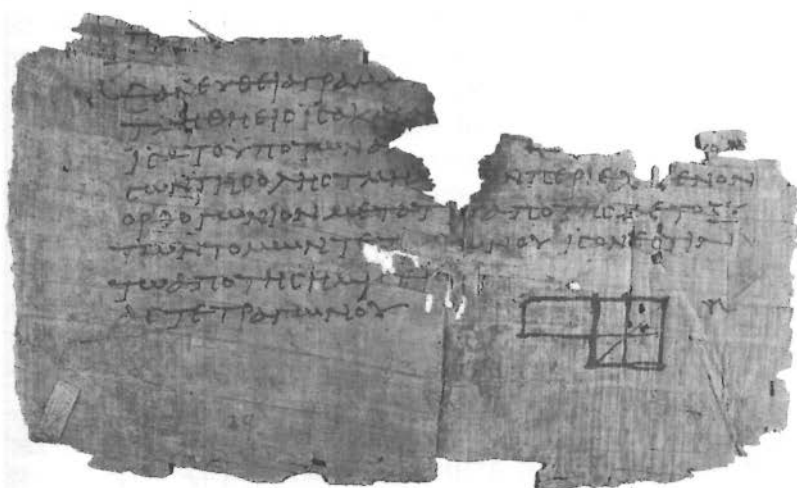 ΕΑΝ ΕΥΘΕΙΑ ΓΡΑΜΜ
ΤΜΗΘΗ ΕΙϹ ΙϹΑ ΚΑΙ ΑΝ
ΙϹΑ ΤΟ ΥΠΟ ΤΩΝ ΑΝ
ϹΩΝ ΤΗϹ ΟΛΗϹ ΤΜΗΜ Ν ΠΕΡΙΕΧ ΕΝΟΝ
ΟΡΘΟΓΩΝΙΟΝ ΜΕΤΑ Τ ΑΠΟ ΤΗϹ ΜΕΤΟΞΥ
ΤΩΝ ΤΟΜΩΝ ΤΕΤ ΩΝΟΥ ΙϹΟΝ ΕϹΤΙΝ
ΤΩ ΑΠΟ ΤΗϹ ΗΜΙϹ
ΑϹ ΤΕΤΡΑΓΩΝΟΥ